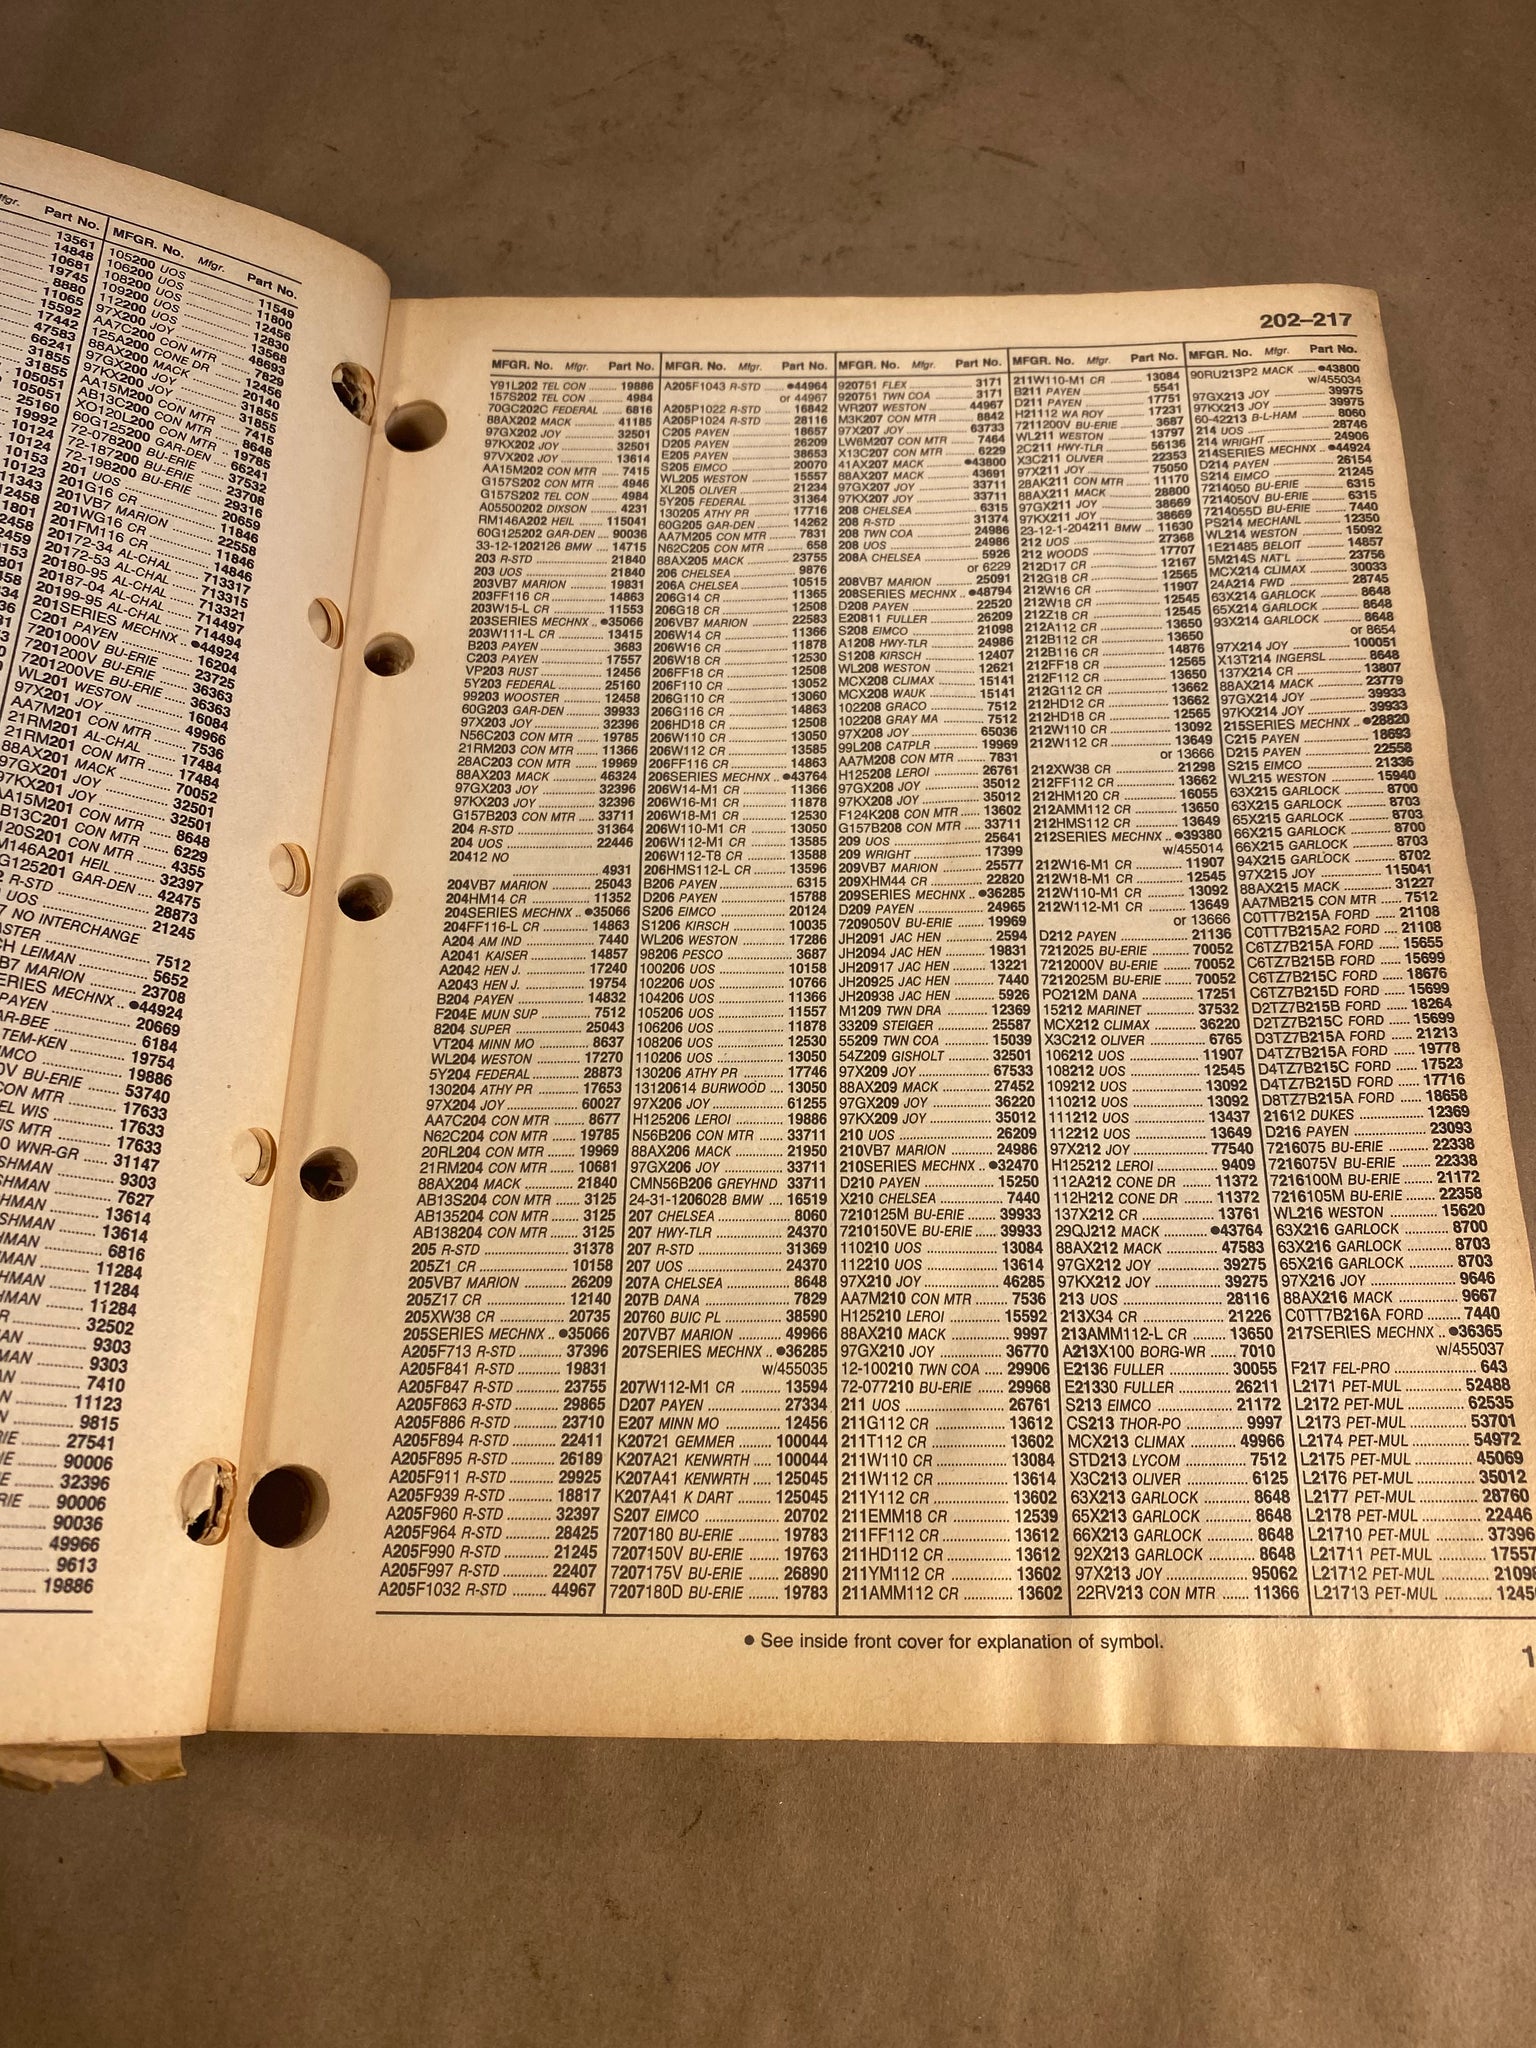 Mfgr. Part No.
13561
14848
10681
19745
8880
11065
15592
17442
47583
66241
31855
31855
105051
105051
25160
19992
10124
10124
10153
10123
11343
MFGR. No. Mfgr. Part No.
105200 UOS 11549
106200 UOS 11800
108200 UOS 12456
109200 UOS 12830
112200 UOS 13568
97X200 JOY 48693
AA7C200 CON MTR 7829
125A200 CONE DR 12456
88AX200 MACK 20140
97GX200 JOY 31855
97KX200 JOY 31855
AA15M200 CON MTR 7415
AB13C200 CON MTR 8648
XO120L200 CON MTR 19785
60G125200 GAR-DEN .. 66241
72-078200 BU-ERIE 37532
72-187200 BU-ERIE 23708
72-198200 BU-ERIE 29316
201 UOS 20659
201G16 CR 11846
201VB7 MARION 22558
201WG16 CR 11846
201FM116 CR 14846
20172-34 AL-CHAL 713317
20172-53 AL-CHAL 713315
20180-95 AL-CHAL 713321
20187-04 AL-CHAL 714497
20199-95 AL-CHAL 714494
201SERIES MECHNX .. ●44924
C201 PAYEN 16204
7201000V BU-ERIE 23725
7201200V BU-ERIE 36363
7201200VE BU-ERIE 36363
WL201 WESTON 16084
97X201 JOY 49966
AA7M201 CON MTR 7536
21RM201 AL-CHAL 17484
21RM201 CON MTR 17484
88AX201 MACK 70052
97GX201 JOY 32501
97KX201 JOY 32501
AA15M201 CON MTR 8648
AB13C201 CON MTR 6229
120S201 CON MTR 4355
M146A201 HEIL 32397
G125201 GAR-DEN 42475
R-STD 28873
UOS 21245
NO INTERCHANGE
ASTER 7512
CH LEIMAN 5652
B7 MARION 23708
ERIES MECHNX .. ●44924
PAYEN 20669
AR-BEE 6184
TEM-KEN 19754
IMCO 19886
0V BU-ERIE 53740
CON MTR 17633
EL WIS 17633
IS MTR 17633
0 WNR-GR 31147
SHMAN 9303
SHMAN 7627
HMAN 13614
SHMAN 13614
HMAN 6816
MAN 11284
HMAN 11284
HMAN 11284
R 32502
AN 9303
MAN 9303
N 7410
AN 11123
N 9815
RIE 27541
90006
IE 32396
RIE 90006
90036
49966
9613
19886
202–217
MFGR. No. Mfgr. Part No.
Y91L202 TEL CON 19886
157S202 TEL CON 4984
70GC202C FEDERAL 6816
88AX202 MACK 41185
97GX202 JOY 32501
97KX202 JOY 32501
97VX202 JOY 13614
AA15M202 CON MTR 7415
G157S202 CON MTR 4946
G157S202 TEL CON 4984
A05500202 DIXSON 4231
RM146A202 HEIL 115041
60G125202 GAR-DEN 90036
33-12-1202126 BMW 14715
203 R-STD 21840
203 UOS 21840
203VB7 MARION 19831
203FF116 CR 14863
203W15-L CR 11553
203SERIES MECHNX .. ●35066
203W111-L CR 13415
B203 PAYEN 3683
C203 PAYEN 17557
VP203 RUST 12456
5Y203 FEDERAL 25160
99203 WOOSTER 12458
60G203 GAR-DEN 39933
97X203 JOY 32396
N56C203 CON MTR 19785
21RM203 CON MTR 11366
28AC203 CON MTR 19969
88AX203 MACK 46324
97GX203 JOY 32396
97KX203 JOY 32396
G157B203 CON MTR 33711
204 R-STD 31364
204 UOS 22446
20412 NO
4931
204VB7 MARION 25043
204HM14 CR 11352
204SERIES MECHNX .. ●35066
204FF116-L CR 14863
A204 AM IND 7440
A2041 KAISER 14857
A2042 HEN J. 17240
A2043 HEN J. 19754
B204 PAYEN 14832
F204E MUN SUP 7512
8204 SUPER 25043
VT204 MINN MO 8637
WL204 WESTON 17270
5Y204 FEDERAL 28873
130204 ATHY PR 17653
97X204 JOY 60027
AA7C204 CON MTR 8677
N62C204 CON MTR 19785
20RL204 CON MTR 19969
21RM204 CON MTR 10681
88AX204 MACK 21840
AB13S204 CON MTR 3125
AB135204 CON MTR 3125
AB138204 CON MTR 3125
205 R-STD 31378
205Z1 CR 10158
205VB7 MARION 26209
205Z17 CR 12140
205XW38 CR 20735
205SERIES MECHNX .. ●35066
A205F713 R-STD 37396
A205F841 R-STD 19831
A205F847 R-STD 23755
A205F863 R-STD 29865
A205F886 R-STD 23710
A205F894 R-STD 22411
A205F895 R-STD 26189
A205F911 R-STD 29925
A205F939 R-STD 18817
A205F960 R-STD 32397
A205F964 R-STD 28425
A205F990 R-STD 21245
A205F997 R-STD 22407
A205F1032 R-STD 44967
MFGR. No. Mfgr. Part No.
A205F1043 R-STD ●44964
or 44967
A205P1022 R-STD 16842
A205P1024 R-STD 28116
C205 PAYEN 18657
D205 PAYEN 26209
E205 PAYEN 38653
S205 EIMCO 20070
WL205 WESTON 15557
XL205 OLIVER 21234
5Y205 FEDERAL 31364
130205 ATHY PR 17716
60G205 GAR-DEN 14262
AA7M205 CON MTR 7831
N62C205 CON MTR 658
88AX205 MACK 23755
206 CHELSEA 9876
206A CHELSEA 10515
206G14 CR 11365
206G18 CR 12508
206VB7 MARION 22583
206W14 CR 11366
206W16 CR 11878
206W18 CR 12530
206FF18 CR 12508
206F110 CR 13052
206G110 CR 13060
206G116 CR 14863
206HD18 CR 12508
206W110 CR 13050
206W112 CR 13585
206FF116 CR 14863
206SERIES MECHNX .. ●43764
206W14-M1 CR 11366
206W16-M1 CR 11878
206W18-M1 CR 12530
206W110-M1 CR 13050
206W112-M1 CR 13585
206W112-T8 CR 13588
206HMS112-L CR 13596
B206 PAYEN 6315
D206 PAYEN 15788
S206 EIMCO 20124
S1206 KIRSCH 10035
WL206 WESTON 17286
98206 PESCO 3687
100206 UOS 10158
102206 UOS 10766
104206 UOS 11366
105206 UOS 11557
106206 UOS 11878
108206 UOS 12530
110206 UOS 13050
130206 ATHY PR 17746
13120614 BURWOOD 13050
97X206 JOY 61255
H125206 LEROI 19886
N56B206 CON MTR 33711
88AX206 MACK 21950
97GX206 JOY 33711
CMN56B206 GREYHND 33711
24-31-1206028 BMW 16519
207 CHELSEA 8060
207 HWY-TLR 24370
207 R-STD 31369
207 UOS 24370
207A CHELSEA 8648
207B DANA 7829
20760 BUIC PL 38590
207VB7 MARION 49966
207SERIES MECHNX .. ●36285
w/455035
207W112-M1 CR 13594
D207 PAYEN 27334
E207 MINN MO 12456
K20721 GEMMER 100044
K207A21 KENWRTH 100044
K207A41 KENWRTH 125045
K207A41 K DART 125045
S207 EIMCO 20702
7207180 BU-ERIE 19783
7207150V BU-ERIE 19763
7207175V BU-ERIE 26890
7207180D BU-ERIE 19783
MFGR. No. Mfgr. Part No.
920751 FLEX 3171
920751 TWN COA 3171
WR207 WESTON 44967
M3K207 CON MTR 8842
97X207 JOY 63733
LW6M207 CON MTR 7464
X13C207 CON MTR 6229
41AX207 MACK ●43800
88AX207 MACK 43691
97GX207 JOY 33711
97KX207 JOY 33711
208 CHELSEA 6315
208 R-STD 31374
208 TWN COA 24986
208 UOS 24986
208A CHELSEA 5926
or 6229
208VB7 MARION 25091
208SERIES MECHNX .. ●48794
D208 PAYEN 22520
E20811 FULLER 26209
S208 EIMCO 21098
A1208 HWY-TLR 24986
S1208 KIRSCH 12407
WL208 WESTON 12621
MCX208 CLIMAX 15141
MCX208 WAUK 15141
102208 GRACO 7512
102208 GRAY MA 7512
97X208 JOY 65036
99L208 CATPLR 19969
AA7M208 CON MTR 7831
H125208 LEROI 26761
97GX208 JOY 35012
97KX208 JOY 35012
F124K208 CON MTR 13602
G157B208 CON MTR 33711
209 UOS 25641
209 WRIGHT 17399
209VB7 MARION 25577
209XHM44 CR 22820
209SERIES MECHNX .. ●36285
D209 PAYEN 24965
7209050V BU-ERIE 19969
JH2091 JAC HEN 2594
JH2094 JAC HEN 19831
JH20917 JAC HEN 13221
JH20925 JAC HEN 7440
JH20938 JAC HEN 5926
M1209 TWN DRA 12369
33209 STEIGER 25587
55209 TWN COA 15039
54Z209 GISHOLT 32501
97X209 JOY 67533
88AX209 MACK 27452
97GX209 JOY 36220
97KX209 JOY 35012
210 UOS 26209
210VB7 MARION 24986
210SERIES MECHNX .. ●32470
D210 PAYEN 15250
X210 CHELSEA 7440
7210125M BU-ERIE 39933
7210150VE BU-ERIE 39933
110210 UOS 13084
112210 UOS 13614
97X210 JOY 46285
AA7M210 CON MTR 7536
H125210 LEROI 15592
88AX210 MACK 9997
97GX210 JOY 36770
12-100210 TWN COA 29906
72-077210 BU-ERIE 29968
211 UOS 26761
211G112 CR 13612
211T112 CR 13602
211W110 CR 13084
211W112 CR 13614
211Y112 CR 13602
211EMM18 CR 12539
211FF112 CR 13612
211HD112 CR 13612
211YM112 CR 13602
211AMM112 CR 13602
MFGR. No. Mfgr. Part No.
211W110-M1 CR 13084
B211 PAYEN 5541
D211 PAYEN 17751
H21112 WA ROY 17231
7211200V BU-ERIE 3687
WL211 WESTON 13797
2C211 HWY-TLR 56136
X3C211 OLIVER 22353
97X211 JOY 75050
28AK211 CON MTR 11170
88AX211 MACK 28800
97GX211 JOY 38669
97KX211 JOY 38669
23-12-1-204211 BMW 11630
212 UOS 27368
212 WOODS 17707
212D17 CR 12167
212G18 CR 12565
212W16 CR 11907
212W18 CR 12545
212Z18 CR 12545
212A112 CR 13650
212B112 CR 13650
212B116 CR 14876
212FF18 CR 12565
212F112 CR 13650
212G112 CR 13662
212HD12 CR 13662
212HD18 CR 12565
212W110 CR 13092
212W112 CR 13649
or 13666
212XW38 CR 21298
212FF112 CR 13662
212HM120 CR 16055
212AMM112 CR 13650
212HMS112 CR 13649
212SERIES MECHNX .. ●39380
w/455014
212W16-M1 CR 11907
212W18-M1 CR 12545
212W110-M1 CR 13092
212W112-M1 CR 13649
or 13666
D212 PAYEN 21136
7212025 BU-ERIE 70052
7212000V BU-ERIE 70052
7212025M BU-ERIE 70052
PO212M DANA 17251
15212 MARINET 37532
MCX212 CLIMAX 36220
X3C212 OLIVER 6765
106212 UOS 11907
108212 UOS 12545
109212 UOS 13092
110212 UOS 13092
111212 UOS 13437
112212 UOS 13649
97X212 JOY 77540
H125212 LEROI 9409
112A212 CONE DR 11372
112H212 CONE DR 11372
137X212 CR 13761
29QJ212 MACK ●43764
88AX212 MACK 47583
97GX212 JOY 39275
97KX212 JOY 39275
213 UOS 28116
213X34 CR 21226
213AMM112-L CR 13650
A213X100 BORG-WR 7010
E2136 FULLER 30055
E21330 FULLER 26211
S213 EIMCO 21172
CS213 THOR-PO 9997
MCX213 CLIMAX 49966
STD213 LYCOM 7512
X3C213 OLIVER 6125
63X213 GARLOCK 8648
65X213 GARLOCK 8648
66X213 GARLOCK 8648
92X213 GARLOCK 8648
97X213 JOY 95062
22RV213 CON MTR 11366
MFGR. No. Mfgr. Part No.
90RU213P2 MACK ●43800
w/455034
97GX213 JOY 39975
97KX213 JOY 39975
60-42213 B-L-HAM 8060
214 UOS 28746
214 WRIGHT 24906
214SERIES MECHNX .. ●44924
D214 PAYEN 26154
S214 EIMCO 21245
7214050 BU-ERIE 6315
7214050V BU-ERIE 6315
7214055D BU-ERIE 7440
PS214 MECHANL 12350
WL214 WESTON 15092
1E21485 BELOIT 14857
5M214S NAT'L 23756
MCX214 CLIMAX 30033
24A214 FWD 28745
63X214 GARLOCK 8648
65X214 GARLOCK 8648
93X214 GARLOCK 8648
or 8654
97X214 JOY 100051
X13T214 INGERSL 8648
137X214 CR 13807
88AX214 MACK 23779
97GX214 JOY 39933
97KX214 JOY 39933
215SERIES MECHNX .. ●28820
C215 PAYEN 18693
D215 PAYEN 22558
S215 EIMCO 21336
WL215 WESTON 15940
63X215 GARLOCK 8700
63X215 GARLOCK 8703
65X215 GARLOCK 8703
66X215 GARLOCK 8700
66X215 GARLOCK 8703
94X215 GARLOCK 8702
97X215 JOY 115041
88AX215 MACK 31227
AA7MB215 CON MTR 7512
C0TT7B215A FORD 21108
C0TT7B215A2 FORD 21108
C6TZ7B215A FORD 15655
C6TZ7B215B FORD 15699
C6TZ7B215C FORD 18676
C6TZ7B215D FORD 15699
D2TZ7B215B FORD 18264
D2TZ7B215C FORD 15699
D3TZ7B215A FORD 21213
D4TZ7B215A FORD 19778
D4TZ7B215C FORD 17523
D4TZ7B215D FORD 17716
D8TZ7B215A FORD 18658
21612 DUKES 12369
D216 PAYEN 23093
7216075 BU-ERIE 22338
7216075V BU-ERIE 22338
7216100M BU-ERIE 21172
7216105M BU-ERIE 22358
WL216 WESTON 15620
63X216 GARLOCK 8700
63X216 GARLOCK 8703
65X216 GARLOCK 8703
97X216 JOY 9646
88AX216 MACK 9667
C0TT7B216A FORD 7440
217SERIES MECHNX .. ●36365
w/455037
F217 FEL-PRO 643
L2171 PET-MUL 52488
L2172 PET-MUL 62535
L2173 PET-MUL 53701
L2174 PET-MUL 54972
L2175 PET-MUL 45069
L2176 PET-MUL 35012
L2177 PET-MUL 28760
L2178 PET-MUL 22446
L21710 PET-MUL 37396
L21711 PET-MUL 17557
L21712 PET-MUL 21098
L21713 PET-MUL 1245
● See inside front cover for explanation of symbol.